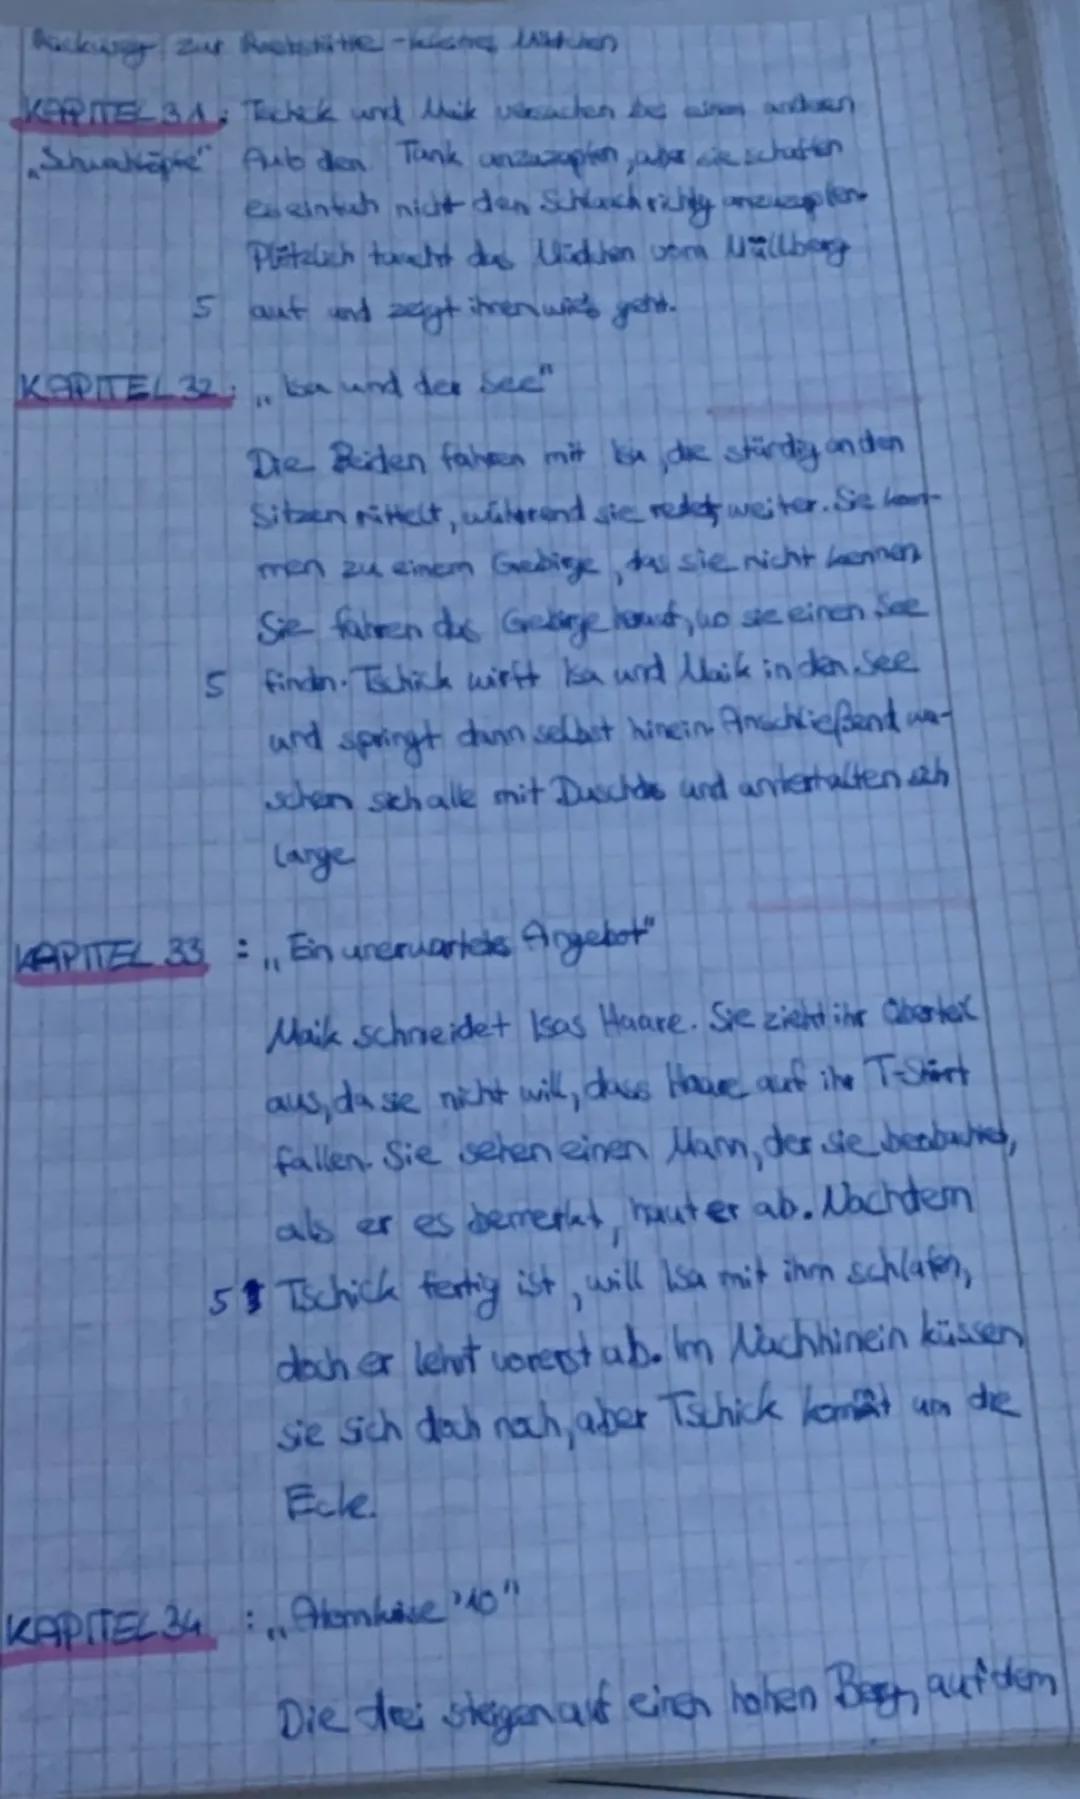 Rückweg zur Raststätte - kleines Mädchen
KAPITEL 31: Tschick und Maik versuchen bei einem anderen
„Schwachköpfe" Auto den Tank anzuzapfen, aber sie schaffen
es einfach nicht den Schlauch richtig anzuzapfen.
Plötzlich taucht das Mädchen vom Müllberg
5 auf und zeigt ihnen wie's geht.
KAPITEL 32: „Isa und der See"
Die Beiden fahren mit Isa, die ständig an den
Sitzen rüttelt, während sie redet, weiter. Sie kom-
men zu einem Gebirge, das sie nicht kennen.
Sie fahren das Gebirge hinauf, wo sie einen See
5 finden. Tschick wirft Isa und Maik in den See
und springt dann selbst hinein. Anschließend wa-
schen sich alle mit Duschdas und unterhalten sich
lange
KAPITEL 33 : „Ein unerwartetes Angebot"
Maik schneidet Isas Haare. Sie zieht ihr Oberteil
aus, da sie nicht will, dass Haare auf ihr T-Shirt
fallen. Sie sehen einen Mann, der sie beobachtet,
als er es bemerkt, haut er ab. Nachdem
5 Tschick fertig ist, will Isa mit ihm schlafen,
doch er lehnt vorerst ab. Im Nachhinein küssen
sie sich doch noch, aber Tschick kommt um die
Ecke.
KAPITEL 34 : „Atomkrise '10"
Die drei steigen auf einen hohen Berg, auf dem